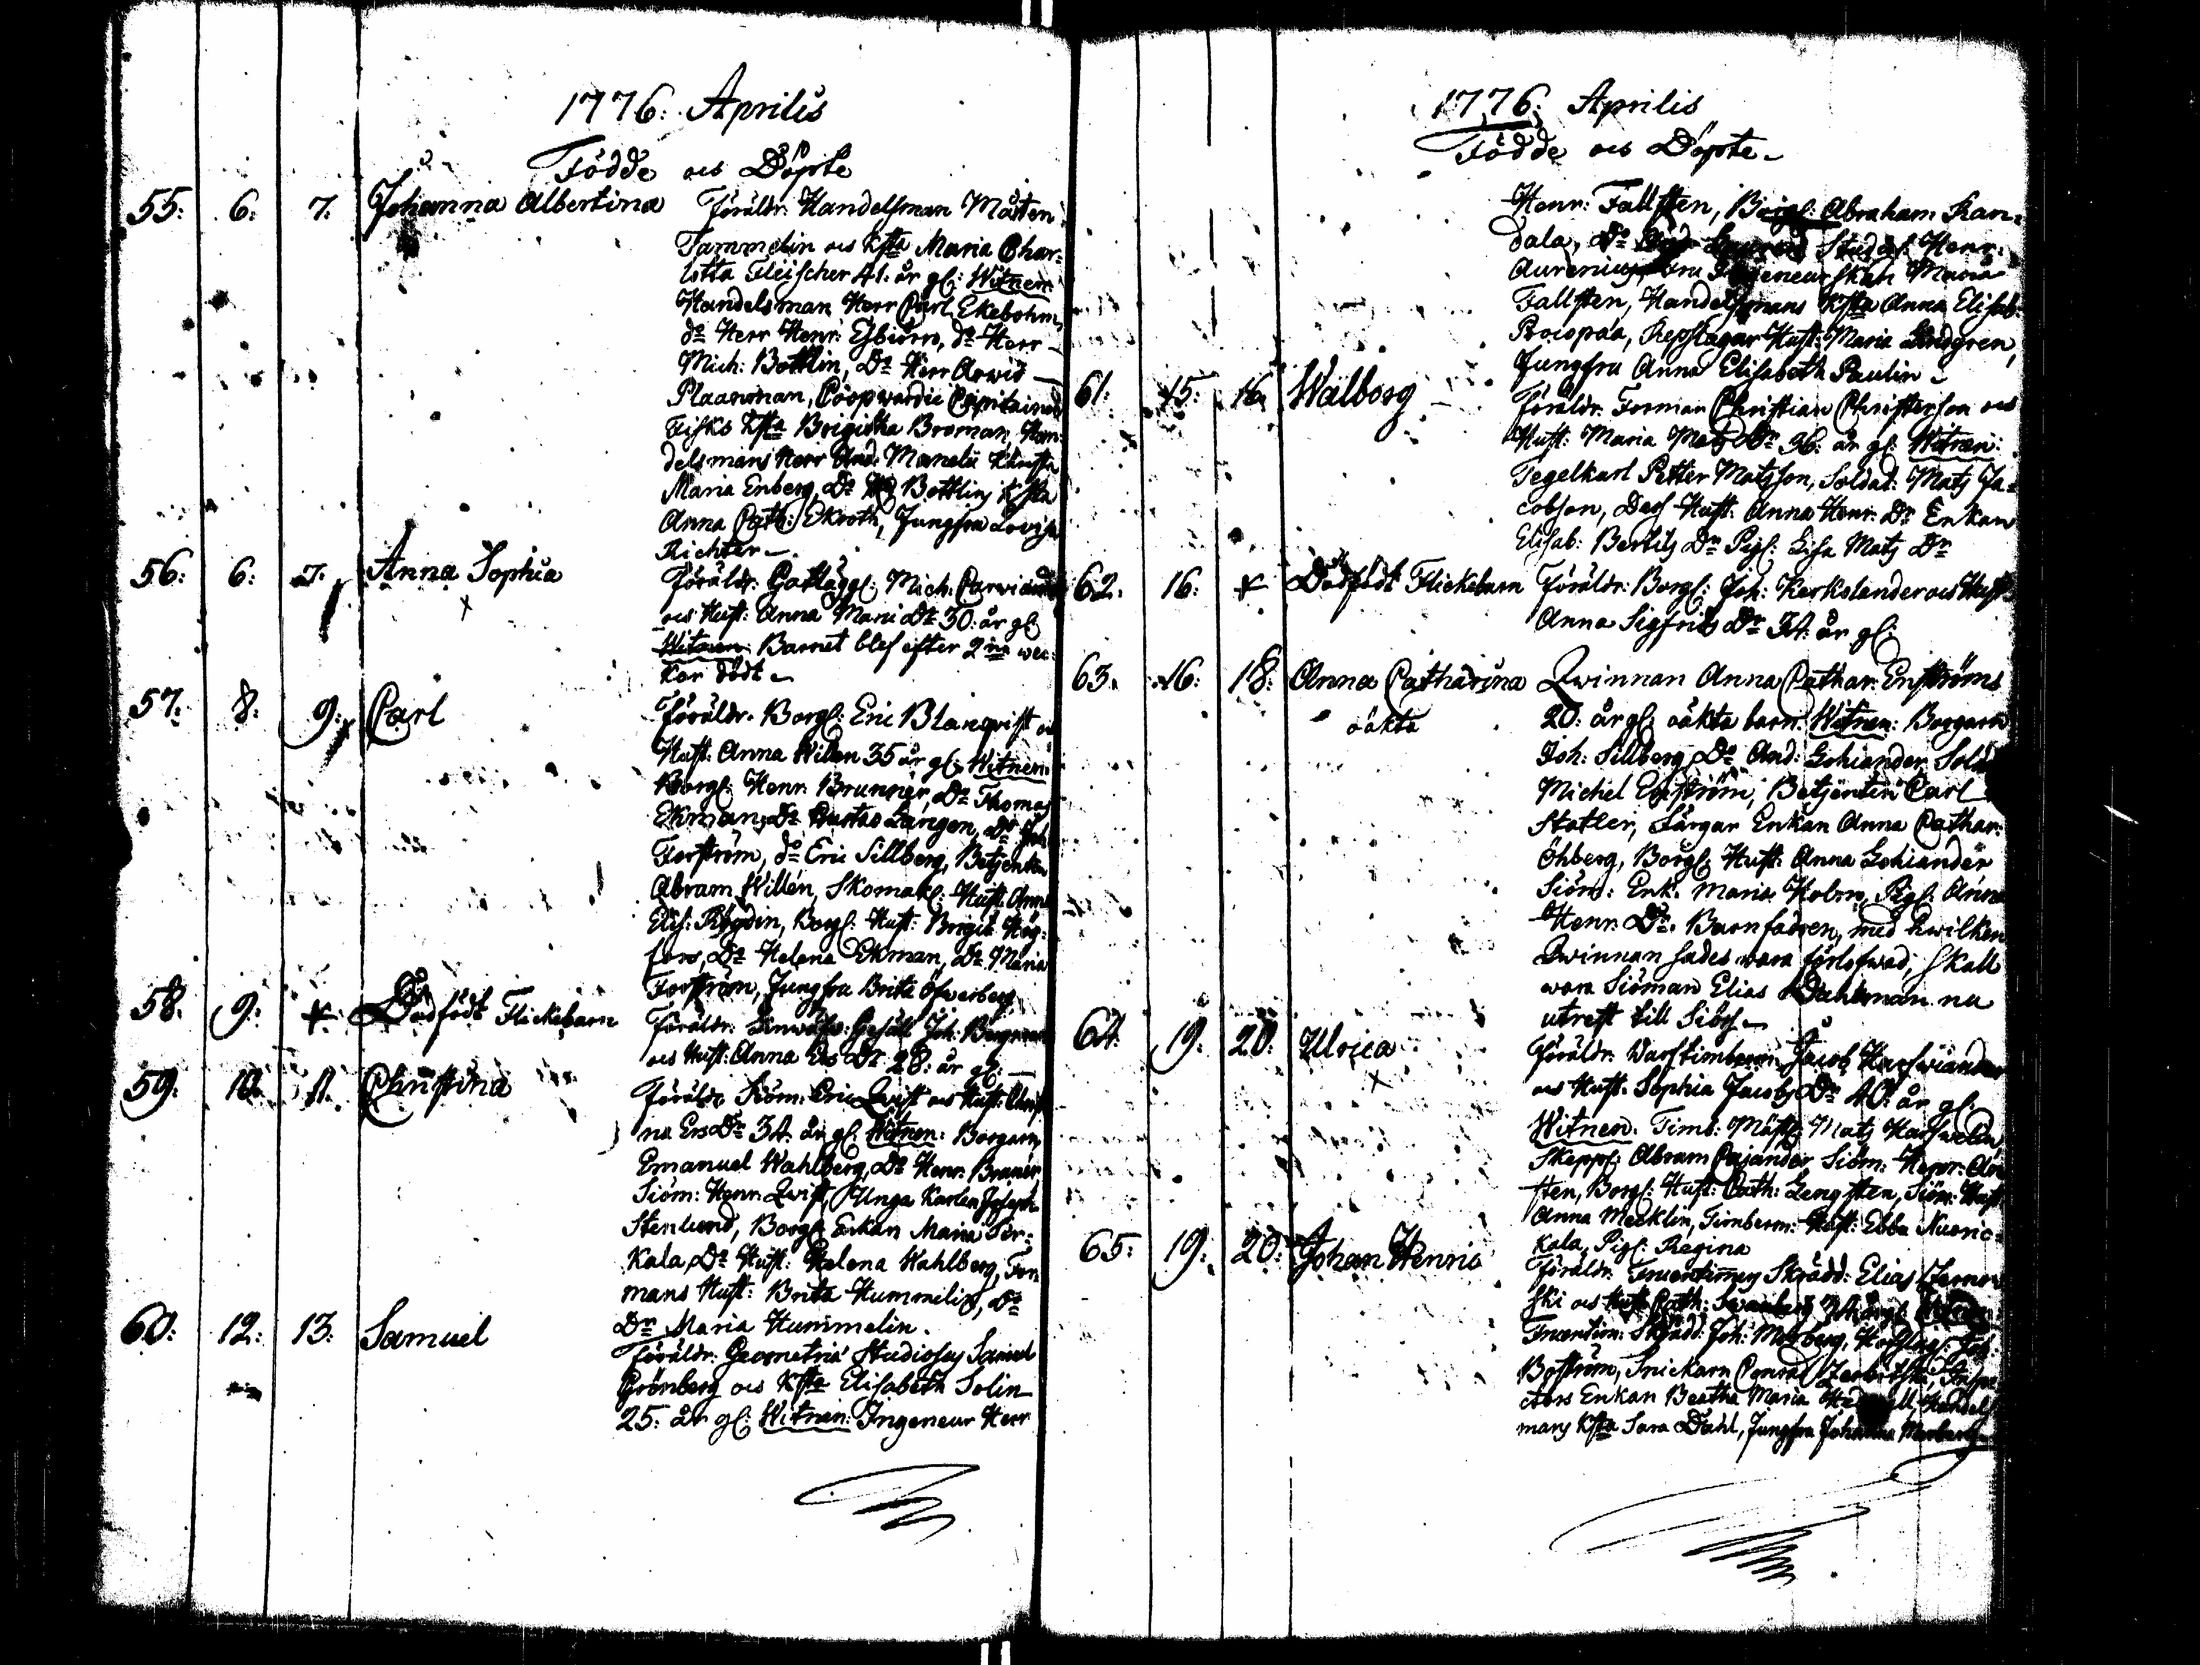 1776: Aprilis
Födde och Döpte
55: 6: 7. Johanna Albertina Föräldr: Handelsman Mårten
Tammelin och Kjsta Maria Char-
lotta Fleischer 41. år gl: Witnen:
Handelsman Herr Carl Ekebohm,
do Herr Henr: Esbiörn, do Herr
Mich: Bottlin, Do Herr Arwid
Plaanman, Coopvardie Capitainen
Fisks Kjsta Brigitha Broman, Han-
delsmans Herr And: Manelii Kjersta
Maria Enberg, Do Bottlins Kjsta
Anna Cath: Ekroth, Jungfru Lovisa
Richter
56: 6: 7. Anna Sophia Föräldr: Mich:
och Hust: Anna Mari Dr 30: år gl:
Witnen: Barnet blef efter 2ne wec-
kor dödt
57: 8. 9: Carl Föräldr: Borgl: Eric Blanqvist och
Hust: Anna Wilen 35 år gl: Witnen:
Borgl: Henr: Brunner, Do Thomas
Ekman, Do Gustav Langen, Do Joh:
Forström, do Eric Sillberg, Betjenten
Abram Willén, Skomak: Hust: Anna
Elis: Rygdin, Borgl: Hust: Brigit: Hög-
fors, Do Helena Ekman, Do Maria
Forström, Jungfru Brita Öfwerberg
58: 9: + Dödfödt Flickebarn Föräldr: Gesäll Joh: Bergman
och Hust: Anna Ers Dr 28: år gl:
59: 10: 11. Christina Föräldr: Siöm: Eric Qwist och Hust: Christi
na Ers Dr 34 år gl: Witnen: Borgarn
Emanuel Wahlberg, Do Henr: Bruner,
Siöm: Henr: Qwist, Unga Karlen Joseph
Stenlund, Borgl: Enkan Maria Per-
kala, Do Hust: Helena Wahlberg, For-
mans Hust: Brita Hummelin, do
Dr Maria Hummelin.
60: 12: 13: Samuel Föräldr: Geometriæ Studiosus Samuel
Grönberg och Kjsta Elisabeth Solin
25: år gl: Witnen: Ingeneur Herr
1776: Aprilis
Födde och Döpte
Henr: Fallsten, Borgl: Abraham Kan-
dala, Do Stud: Henr:
Aurenius, Fru Ingeneurskan Maria
Fallsten, Handelsmans Kjsta Anna Elisab:
Procopæa, Repslagar Hust: Maria Lindgren,
Jungfru Anna Elisabeth Paulin
61: 15: 16. Walborg Föräldr: Forman Christian Christerson och
Hust: Maria Mats Dr 36: år gl: Witnen:
Tegelkarl Petter Matsson, Soldat: Mats Ja-
cobson, Dess Hust: Anna Henr: Dr Enkan
Elisab: Bertils Dr Pigl: Lisa Mats Dr
62. 16: + Dödfödt Flickebarn Föräldr: Borgl: Joh: Karkolander och Hust:
Anna Sigfrids Dr 34: år gl:
63. 16: 18: Anna Catharina Qwinnan Anna Cathar: Enströms
oäkta 20: år gl: oäkta barn: Witnen: Borgarn
Joh: Sillberg, Do And: Lohiander, Sold:
Michel Enström, Betjenten Carl
Statler, Färgar Enkan Anna Cathar:
Öhberg, Borgl: Hust: Anna Lohiander
Siöm: Enk: Maria Holm, Pigl: Anna
Henr: Dr. Barnfadren, med hwilken
Qwinnan sades wara förlofwad, skall
wara Siöman Elias Dahlman nu
utrest till Siöss
64. 19: 20: Ulrica Föräldr: Warfstimberm: Jacob
och Hust: Sophia Jacobs Dr 40: år gl:
Witnen: Timb: Mäst: Mats
Skepps: Abram Pajander, Siöm: Henr:
sten, Borgl: Hust: Cath: Lengsten, Siöm: Hust:
Anna Mecklin, Timberm: Hust: Ebba
kala, Pigl: Regina
65: 19: 20: Johan Henric Föräldr: Fruentimers Skrädd: Elias
ski och Hust: Cath: 34 år gl: Witnen:
Fruentim: Skrädd: Joh: Morberg, Joh:
Boström, Snickarn Conrad
ctors Enkan Beatha Maria Handels
mans Kjsta Sara Dahl, Jungfru Johanna Morberg